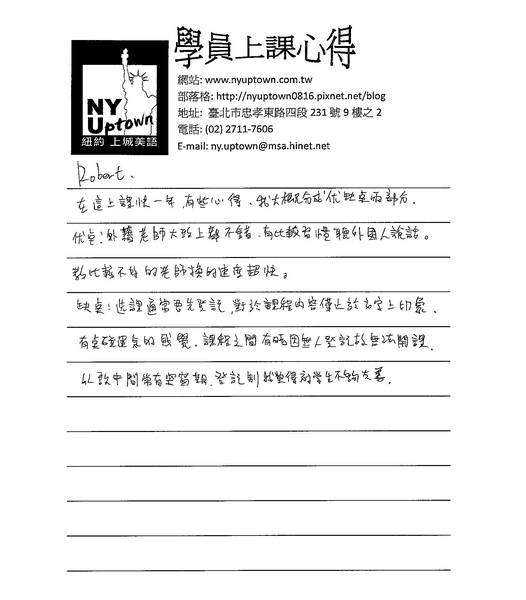 學員上課心得
NY
Uptown
紐約 上城美語
網站: www.nyuptown.com.tw
部落格: http://nyuptown0816.pixnet.net/blog
地址: 臺北市忠孝東路四段 231 號 9 樓之 2
電話: (02) 2711-7606
E-mail: ny.uptown@msa.hinet.net
Robert.
在這上課快一年,有些心得,我大概分成优缺点兩部分.
优点:外籍老師大致上都不錯,有比較習慣聽外國人說話。
教比較不好的老師換的速度超快。
缺点:選課通常要先登記,對於課程內容停止於名字上印象,
有点碰運氣的感覺.課程之間有時因無人登記故無法開課,
以致中間常有空窗期,登記制就覺得對學生不夠友善.